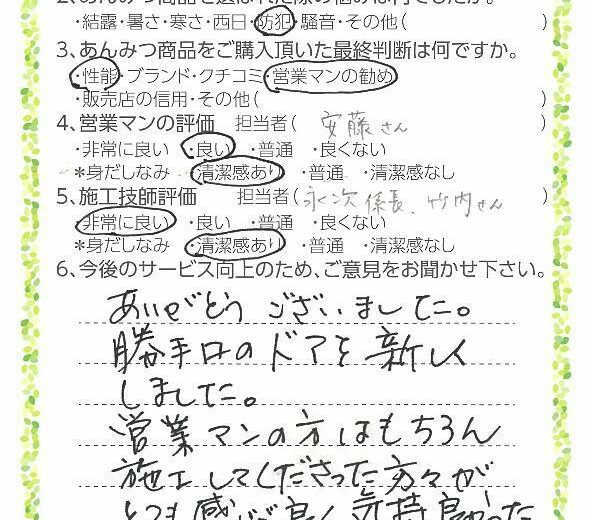 ・結露・暑さ・寒さ・西日・防犯・騒音・その他(　)
3、あんみつ商品をご購入頂いた最終判断は何ですか。
・性能・ブランド・クチコミ・営業マンの勧め
・販売店の信用・その他(　)
4、営業マンの評価　担当者(安藤さん)
・非常に良い　・良い　・普通　・良くない
*身だしなみ　・清潔感あり　・普通　・清潔感なし
5、施工技師評価　担当者(永次係長、竹内さん)
・非常に良い　・良い　・普通　・良くない
*身だしなみ　・清潔感あり　・普通　・清潔感なし
6、今後のサービス向上のため、ご意見をお聞かせ下さい。
ありがとうございました。
勝手口のドアを新しく
しました。
営業マンの方はもちろん
施工してくださった方々が
とても感じが良く気持良かった